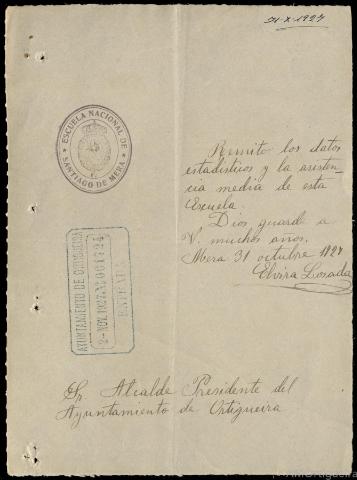 31-X-1927
ESCUELA NACIONAL DE
SANTIAGO DE MERA
Remito los datos
estadisticos y la asisten-
cia media de esta
Escuela.
Dios guarde a
V. muchos años.
Mera 31 octubre 1927
Elvira Losada
AYUNTAMIENTO DE ORTIGUEIRA
2-NOV.1927
ENTRADA
Sr. Alcalde Presidente del
Ayuntamiento de Ortigueira
AMOrtigueira